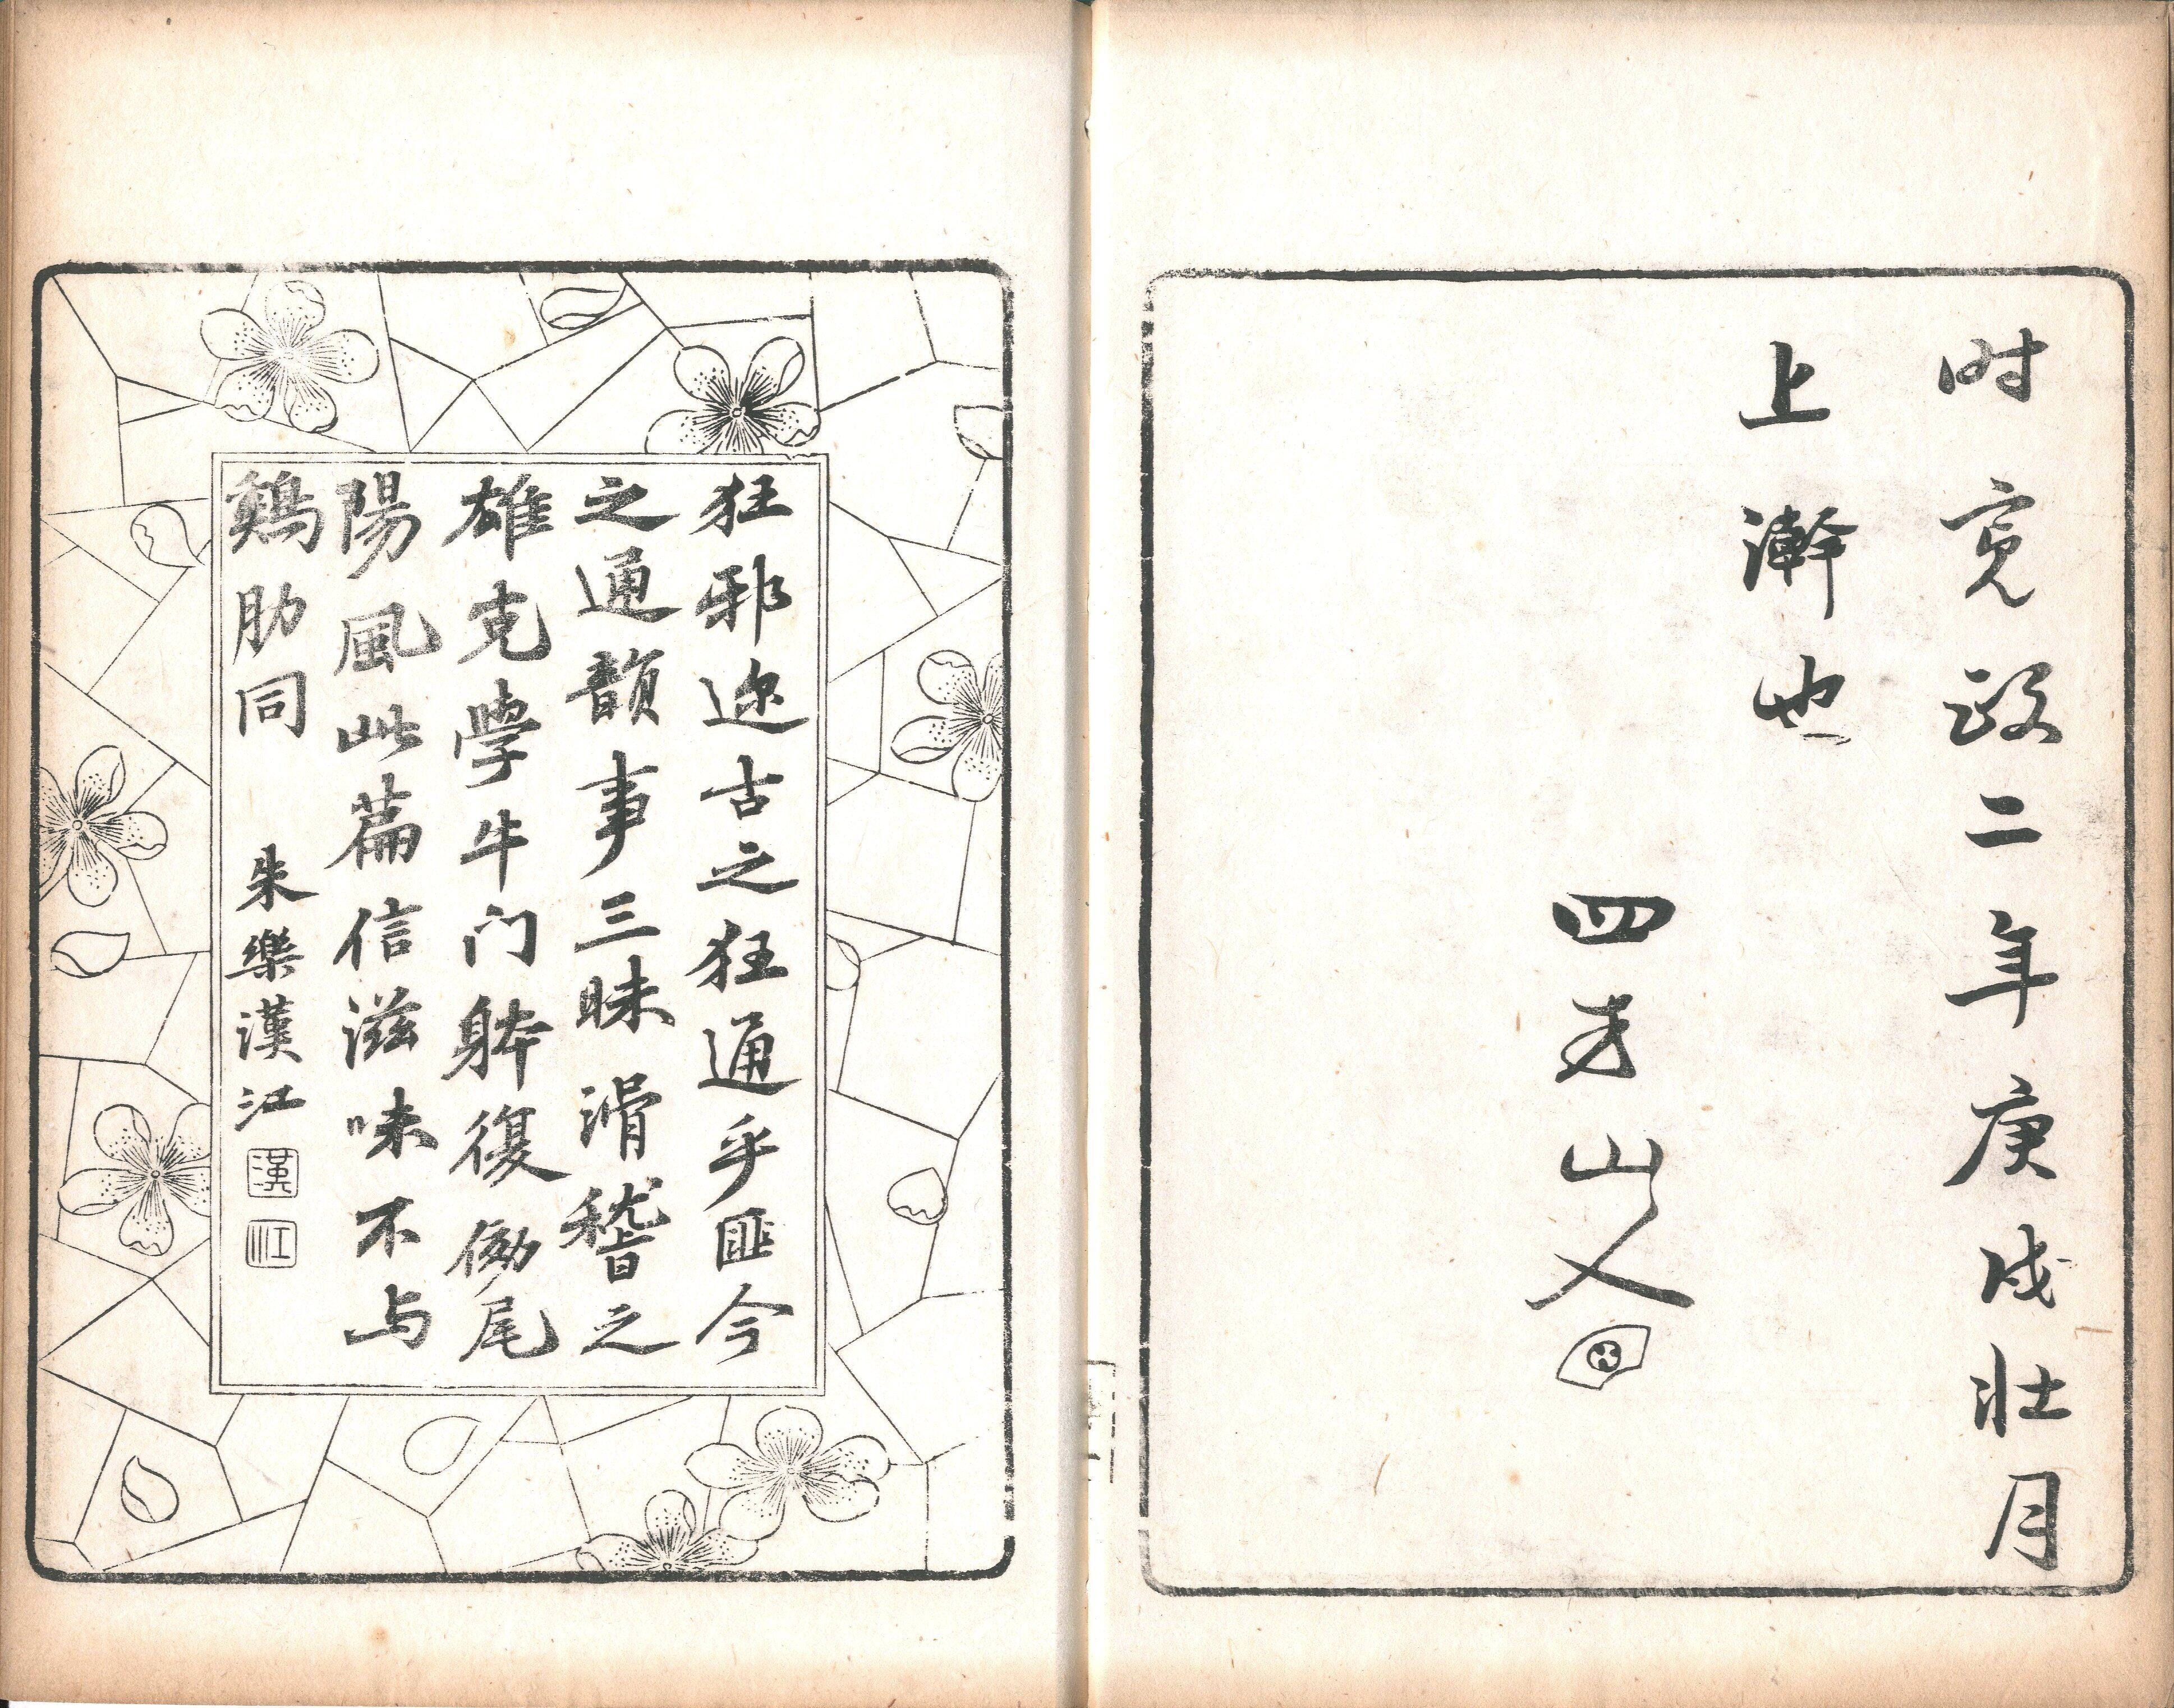 时寛政二年庚戌壮月
上澣也
四方山人
狂邪迩古之狂通乎匪今
之通韻事三昧滑稽之
雄克學牛门躰復俲尾
陽風此篇信滋味不与
鷄肋同
朱樂漢江
漢
江